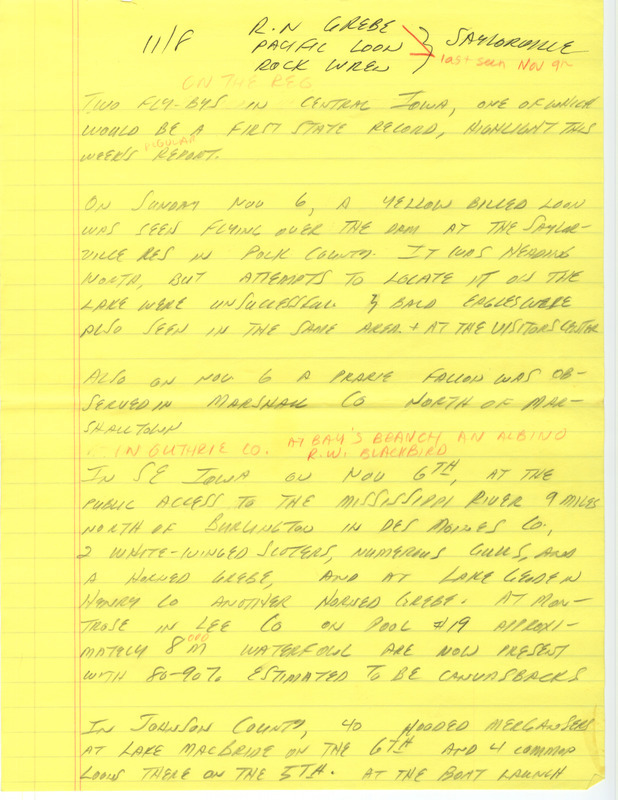 11/8 R.N GREBE
PACIFIC LOON } SAYLORVILLE
ROCK WREN last seen Nov 9th
ON THE REG
TWO FLY-BYS IN CENTRAL IOWA, ONE OF WHICH
WOULD BE A FIRST STATE RECORD, HIGHLIGHT THIS
WEEK'S REGULAR REPORT.
ON SUNDAY NOV 6, A YELLOW BILLED LOON
WAS SEEN FLYING OVER THE DAM AT THE SAYLOR-
VILLE RES IN POLK COUNTY. IT WAS HEADING
NORTH, BUT ATTEMPTS TO LOCATE IT ON THE
LAKE WERE UNSUCCESSFUL BALD EAGLES WERE
ALSO SEEN IN THE SAME AREA. + AT THE VISITORS CENTER
ALSO ON NOV 6 A PRARIE FALCON WAS OB-
SERVED IN MARSHALL CO NORTH OF MAR-
SHALLTOWN
IN GUTHRIE CO. AT BAY'S BRANCH AN ALBINO
R.W. BLACKBIRD
IN SE IOWA ON NOV 6TH, AT THE
PUBLIC ACCESS TO THE MISSISSIPPI RIVER 9 MILES
NORTH OF BURLINGTON IN DES MOINES CO.,
2 WHITE-WINGED SCOTERS, NUMEROUS GULLS, AND
A HORNED GREBE, AND AT LAKE GEODE IN
HENRY CO ANOTHER HORNED GREBE. AT MON-
TROSE IN LEE CO ON POOL #19 APPROXI-
MATELY 8000 WATERFOWL ARE NOW PRESENT
WITH 80-90% ESTIMATED TO BE CANVASBACKS
IN JOHNSON COUNTY, 40 HOODED MERGANSERS
AT LAKE MACBRIDE ON THE 6TH AND 4 COMMON
LOONS THERE ON THE 5TH. AT THE BOAT LAUNCH